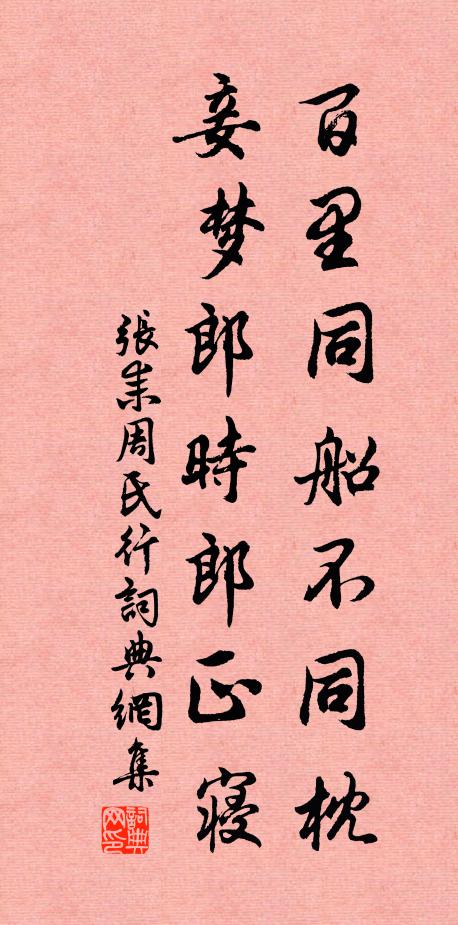 百里同船不同枕
妾梦郎時郎正寝
張耒周氏行詞典網集
詞典网印